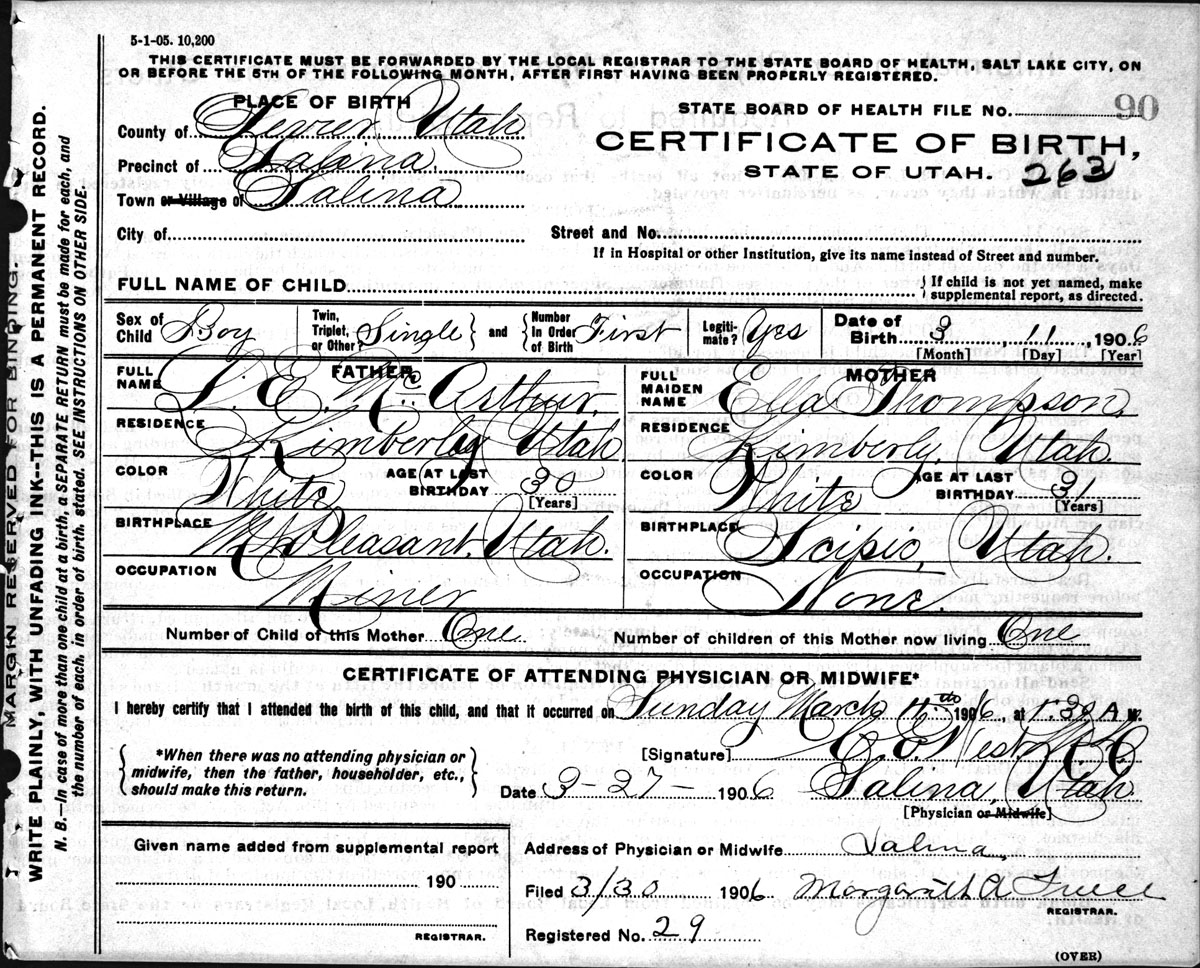 5-1-05. 10,200
THIS CERTIFICATE MUST BE FORWARDED BY THE LOCAL REGISTRAR TO THE STATE BOARD OF HEALTH, SALT LAKE CITY, ON
OR BEFORE THE 5TH OF THE FOLLOWING MONTH, AFTER FIRST HAVING BEEN PROPERLY REGISTERED.
PLACE OF BIRTH
County of Sevier, Utah
Precinct of Salina.
Town or Village of Salina
City of
STATE BOARD OF HEALTH FILE No. 90
CERTIFICATE OF BIRTH,
STATE OF UTAH. 263
Street and No.
If in Hospital or other Institution, give its name instead of Street and number.
FULL NAME OF CHILD
If child is not yet named, make
supplemental report, as directed.
Sex of Child Boy
Twin, Triplet, or Other? Single
and
Number In Order of Birth First
Legiti-mate? Yes
Date of Birth 3, 11, 1906
[Month] [Day] [Year]
FATHER
FULL NAME D. E. McArthur.
RESIDENCE Kimberly Utah
COLOR White
AGE AT LAST BIRTHDAY 30
[Years]
BIRTHPLACE Mt Pleasant, Utah.
OCCUPATION Miner
MOTHER
FULL MAIDEN NAME Ella Thompson.
RESIDENCE Kimberly, Utah.
COLOR White
AGE AT LAST BIRTHDAY 31
[Years]
BIRTHPLACE Scipio, Utah.
OCCUPATION None.
Number of Child of this Mother One
Number of children of this Mother now living One
CERTIFICATE OF ATTENDING PHYSICIAN OR MIDWIFE*
I hereby certify that I attended the birth of this child, and that it occurred on Sunday March 11th 1906, at 1:30 A M.
*When there was no attending physician or
midwife, then the father, householder, etc.,
should make this return.
[Signature] E. West M.D.
Date 3-27- 1906 Salina, Utah
[Physician or Midwife]
Given name added from supplemental report
190
REGISTRAR.
Address of Physician or Midwife Salina,
Filed 3/30 1906 A
REGISTRAR.
Registered No. 29
(OVER)
MARGIN RESERVED FOR BINDING.
WRITE PLAINLY, WITH UNFADING INK--THIS IS A PERMANENT RECORD.
N. B.--In case of more than one child at a birth, a SEPARATE RETURN must be made for each, and
the number of each, in order of birth, stated. SEE INSTRUCTIONS ON OTHER SIDE.